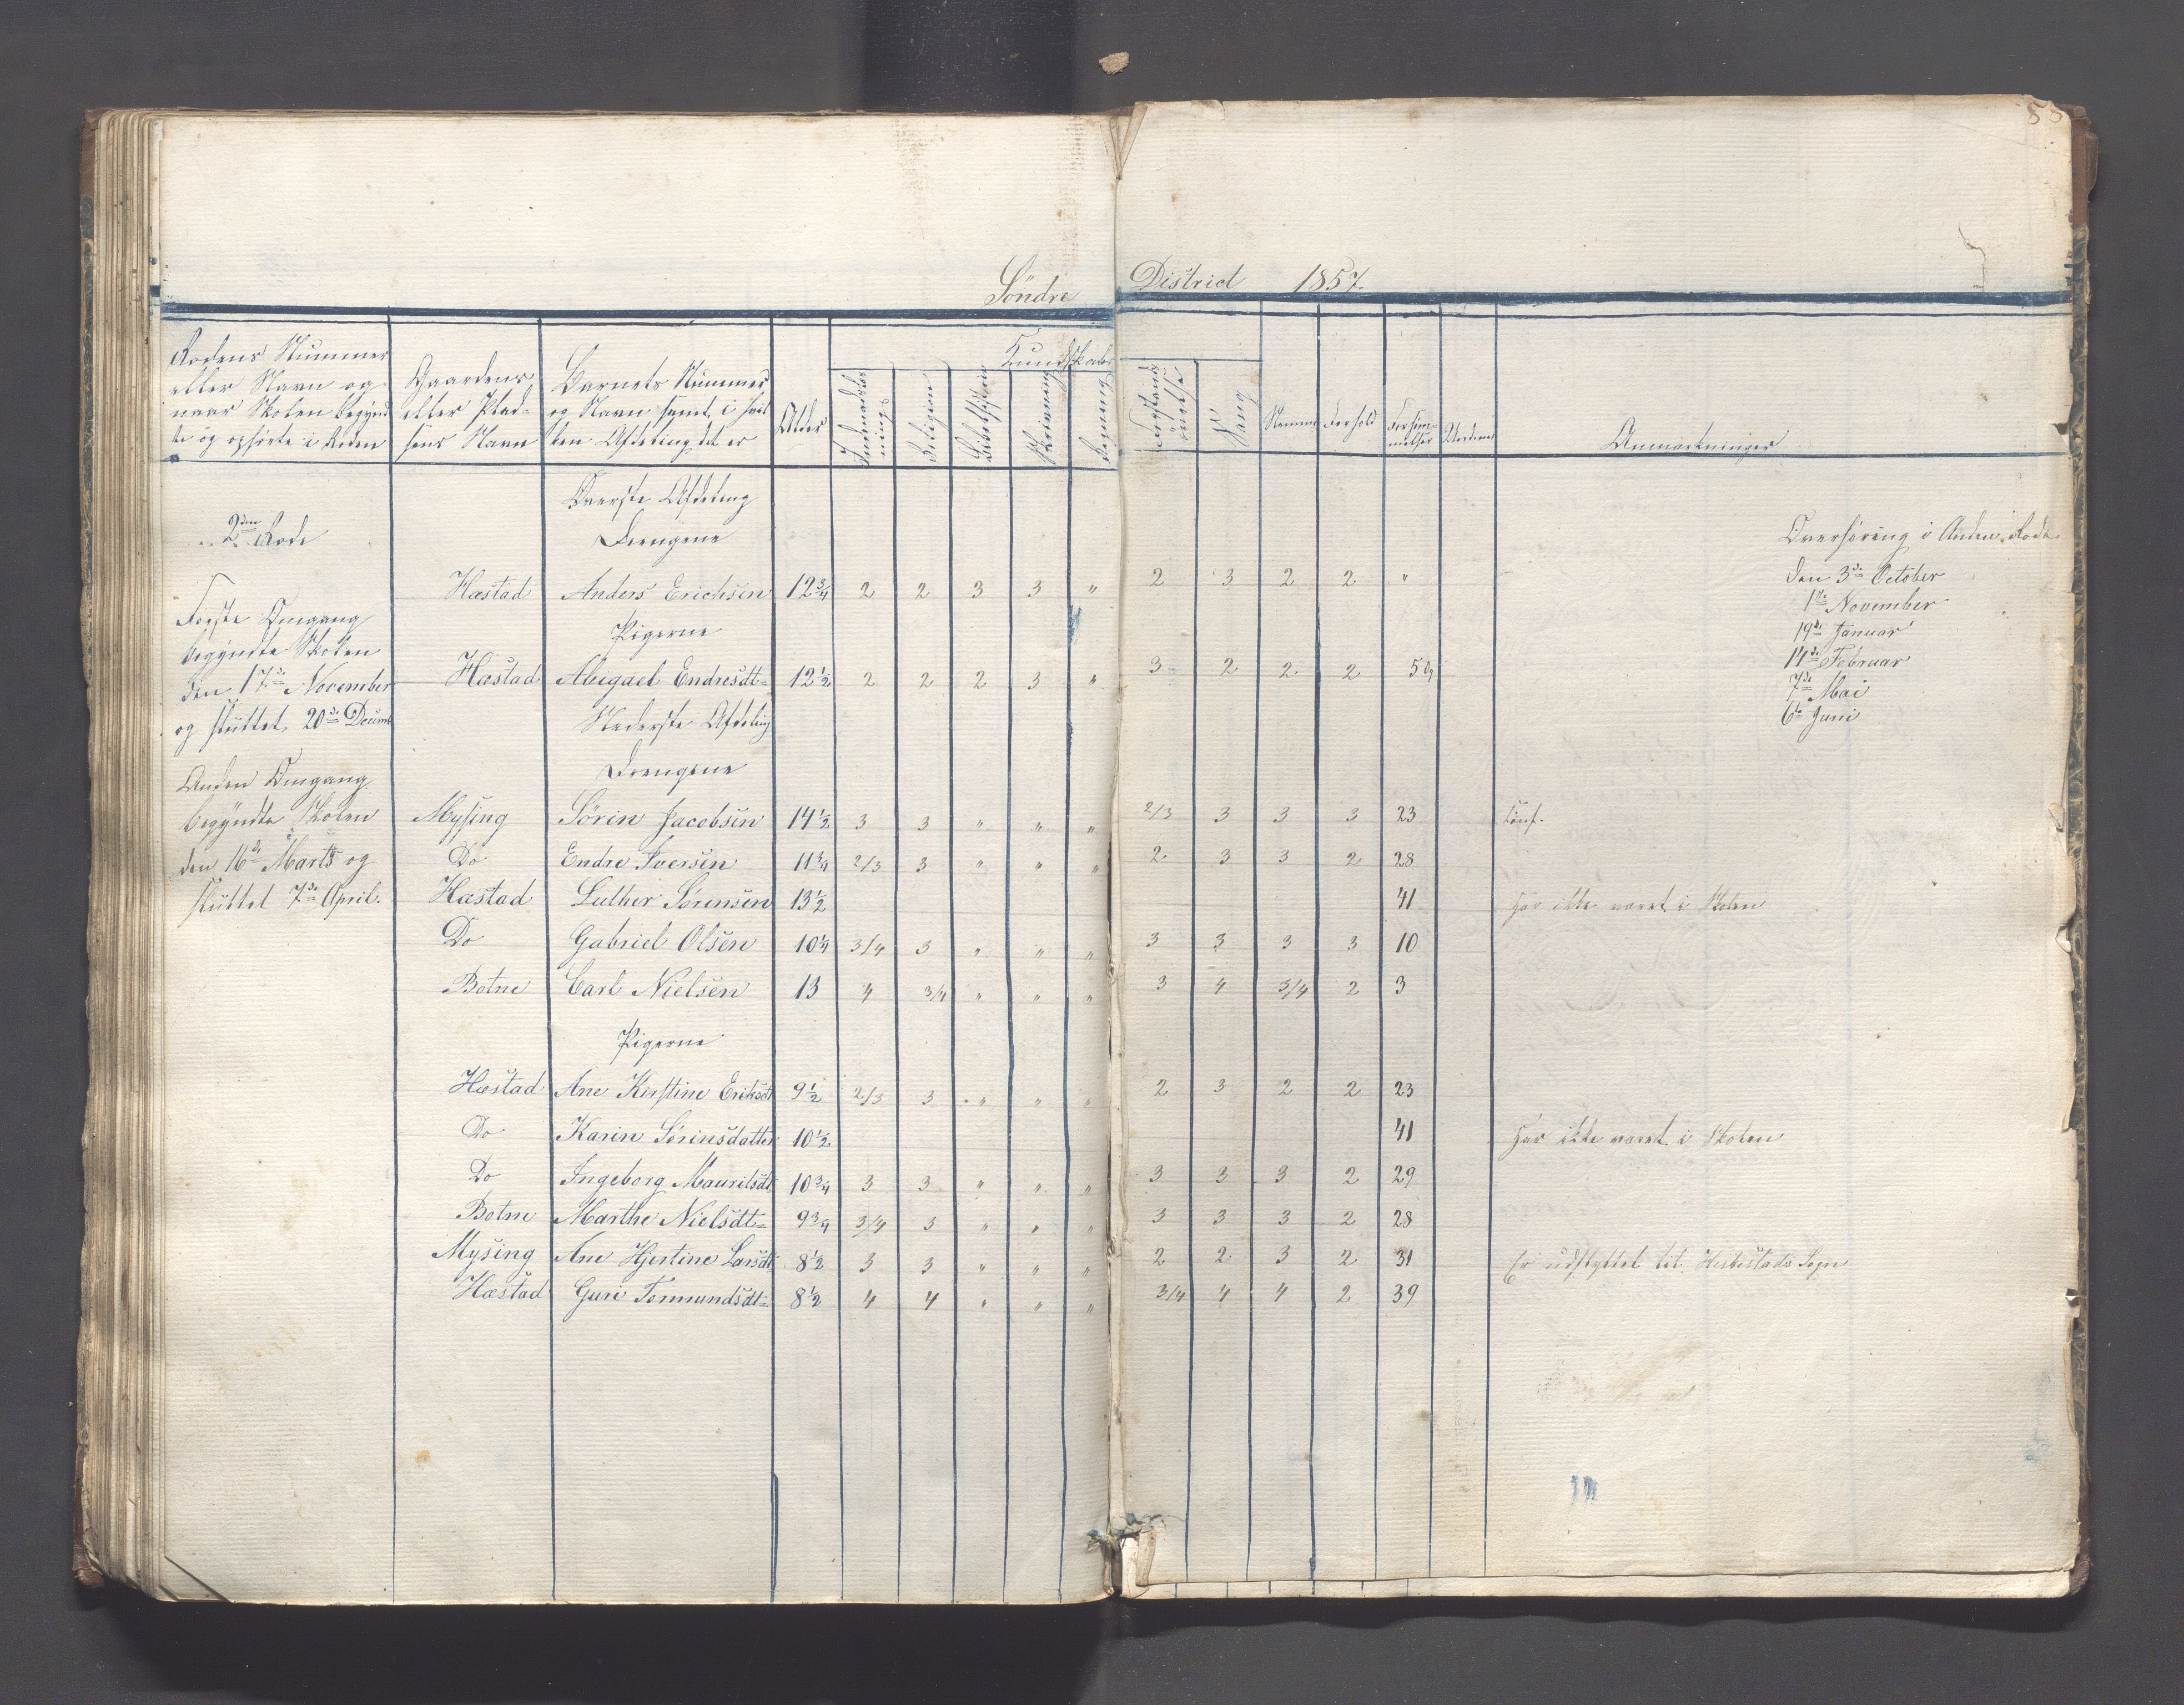 53
Söndre District 1857
Rodens Nummer
eller Navn og
naar Skolen begynd
te og ophørte i Roden
Gaardens
eller Plad-
sens Navn
Barnets Nummer
og Navn samt i hvil
ken Afdeling det er
Alder
Kundskaber
Indenadslæs
nings
Religion
Bibelhistorie
Skrivning
Regning
Forstands
øvelse
Sang
Nemme
Forhold
Forsøm-
melser
Anmærkninger
Øverste Afdeling
2den Rode
Drengene
Overhøring i Anden Rode
Hæstad Anders Erichsen 12 3/4 2 2 3 3 " 2 3 2 2 "
den 3de October
Første Omgang
1ste November
Pigerne
19de Januar
begyndte Skolen
14de Februar
den 17de November Hæstad Abigael Endresdt= 12 1/2 2 2 2 3 " 3 2 2 2 5
7de Mai
og sluttet 20de Decemb
Nederste Afdeling
6te Juni
Anden Omgang
Drengene
begyndte Skolen Mysing Sörin Jacobsen 14 1/2 3 3 " " " 2/3 3 3 3 23 Conf.
den 16de Marts og Do Endre Iversen 11 3/4 2/3 3 " " " 2 3 3 2 28
sluttet 7de April. Hæstad Luther Sörensen 13 1/2 41 Har ikke været i Skolen
Do Gabriel Olsen 10 1/4 3/4 3 " " " 3 3 3 3 10
Botne Carl Nielsen 13 4 3/4 " " " 3 4 3/4 2 3
Pigerne
Hæstad Ane Kirstine Eriksdt 9 1/2 2/3 3 " " " 2 3 2 2 23
Do Karin Sörinsdatter 10 1/2 41 Har ikke været i Skolen
Do Ingeborg Mauritsdt 10 3/4 3 3 " " " 3 3 3 2 29
Botne Marthe Nielsdt= 9 3/4 3/4 3 " " " 3 3 3 2 28
Mysing Ane Hjertine Larsdt 8 1/2 3 3 " " " 2 2 3 2 31 Er udflyttet til Sogn
Hæstad Guri Tormundsdt= 8 1/2 4 4 " " " 3/4 4 4 2 39